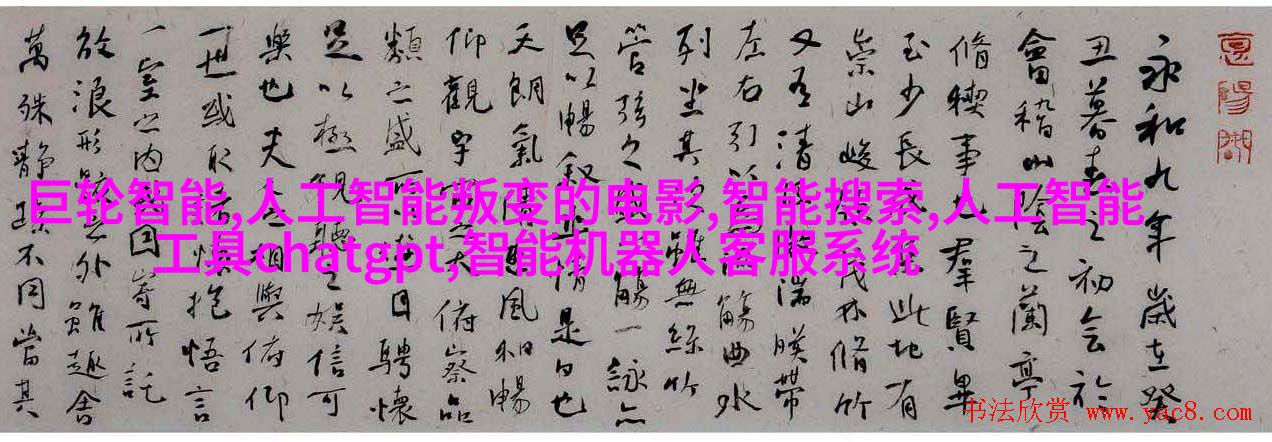 永和九年歲在癸
丑暮春之初會於
會稽山陰之蘭亭
脩稧事也羣賢畢
至少長咸此地有
崇山峻茂林脩竹
又有清湍暎帶
左右引以觴曲水
列坐其次雖無絲竹
管弦之盛一觴一詠亦
足以暢敘幽情是日也
天朗氣清惠風和暢
仰觀宇宙之大俯察品
類之盛所以遊目騁懷
足以極視聽之娛信可
樂也夫人之相與俯仰
一世或取諸懷抱悟言
一室之內或因寄所託
放浪形骸之外雖趣舍
萬殊靜躁不同當其
巨轮智能,人工智能叛变的电影,智能搜索,人工智能
工具chatgpt,智能机器人客服系统
书法欣赏 www.yac8.com